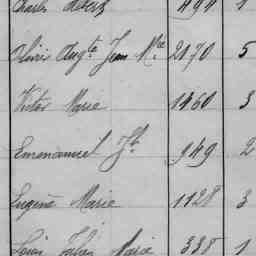 Charles 494 1
Olivier Aug.te Jean M.ie 2170 5
Victor Marie 1460 3
Emmanuel J.h 949 2
Eugène Marie 1128 3
Louis Marie 338 1